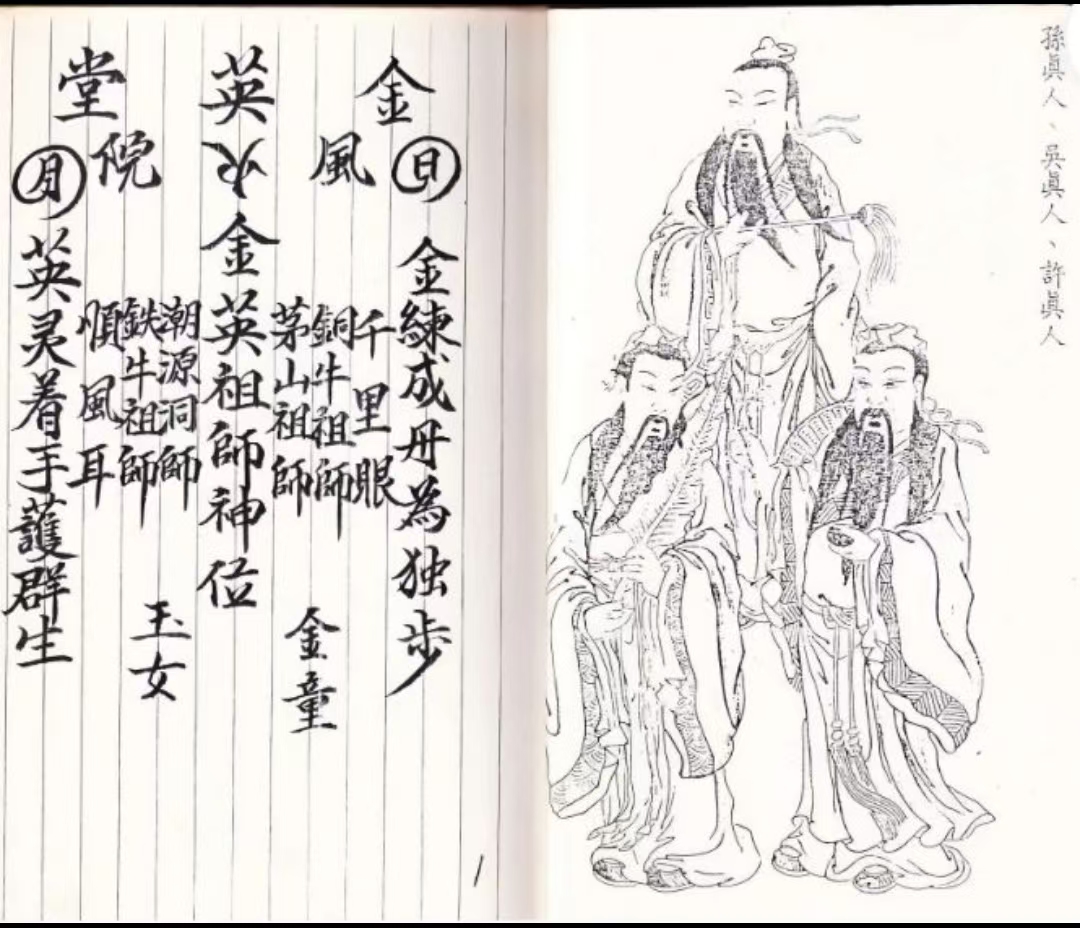 孫眞人、吳眞人、許眞人
金英堂
風火院
日
金練成丹為独步
千里眼
銅牛祖師
茅山祖師
金童
金英祖師神位
潮源洞師
鉄牛祖師
順風耳
玉女
月
英灵着手護群生
1